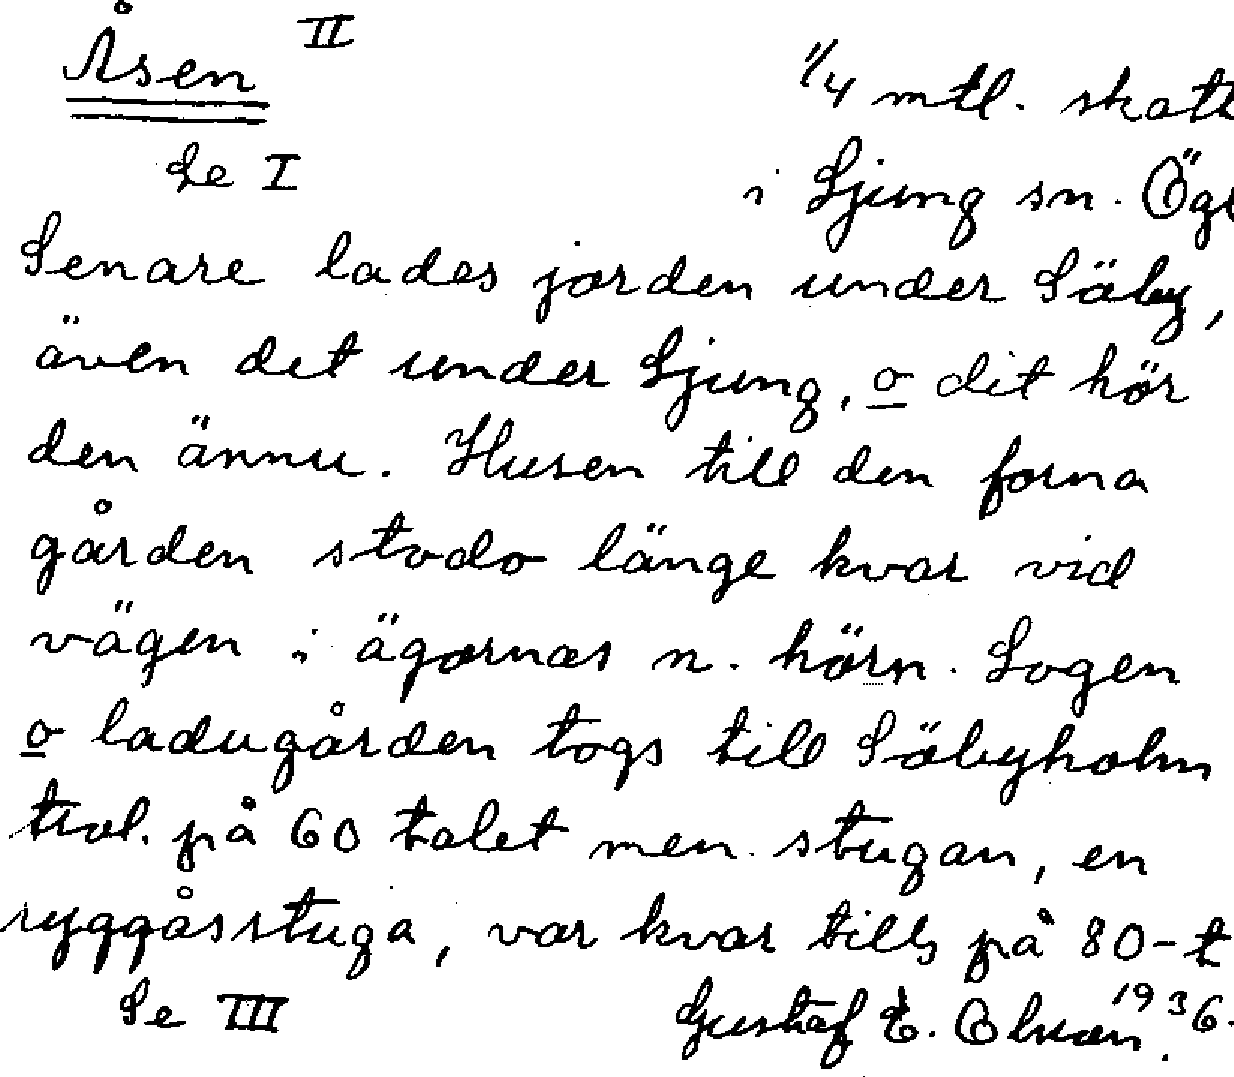 Åsen II
1/4 mtl. skatt
Se I
i Ljung sn. Ögl
Senare lades jorden under Säby,
även det under Ljung, o dit hör
den ännu. Husen till den forna
gården stodo länge kvar vid
vägen i ägornas n. hörn. Logen
o ladugården togs till Säbyholm
trol. på 60 talet men stugan, en
ryggåsstuga, var kvar tills på 80-t
Se III
Gustaf E. Olsson 1936.